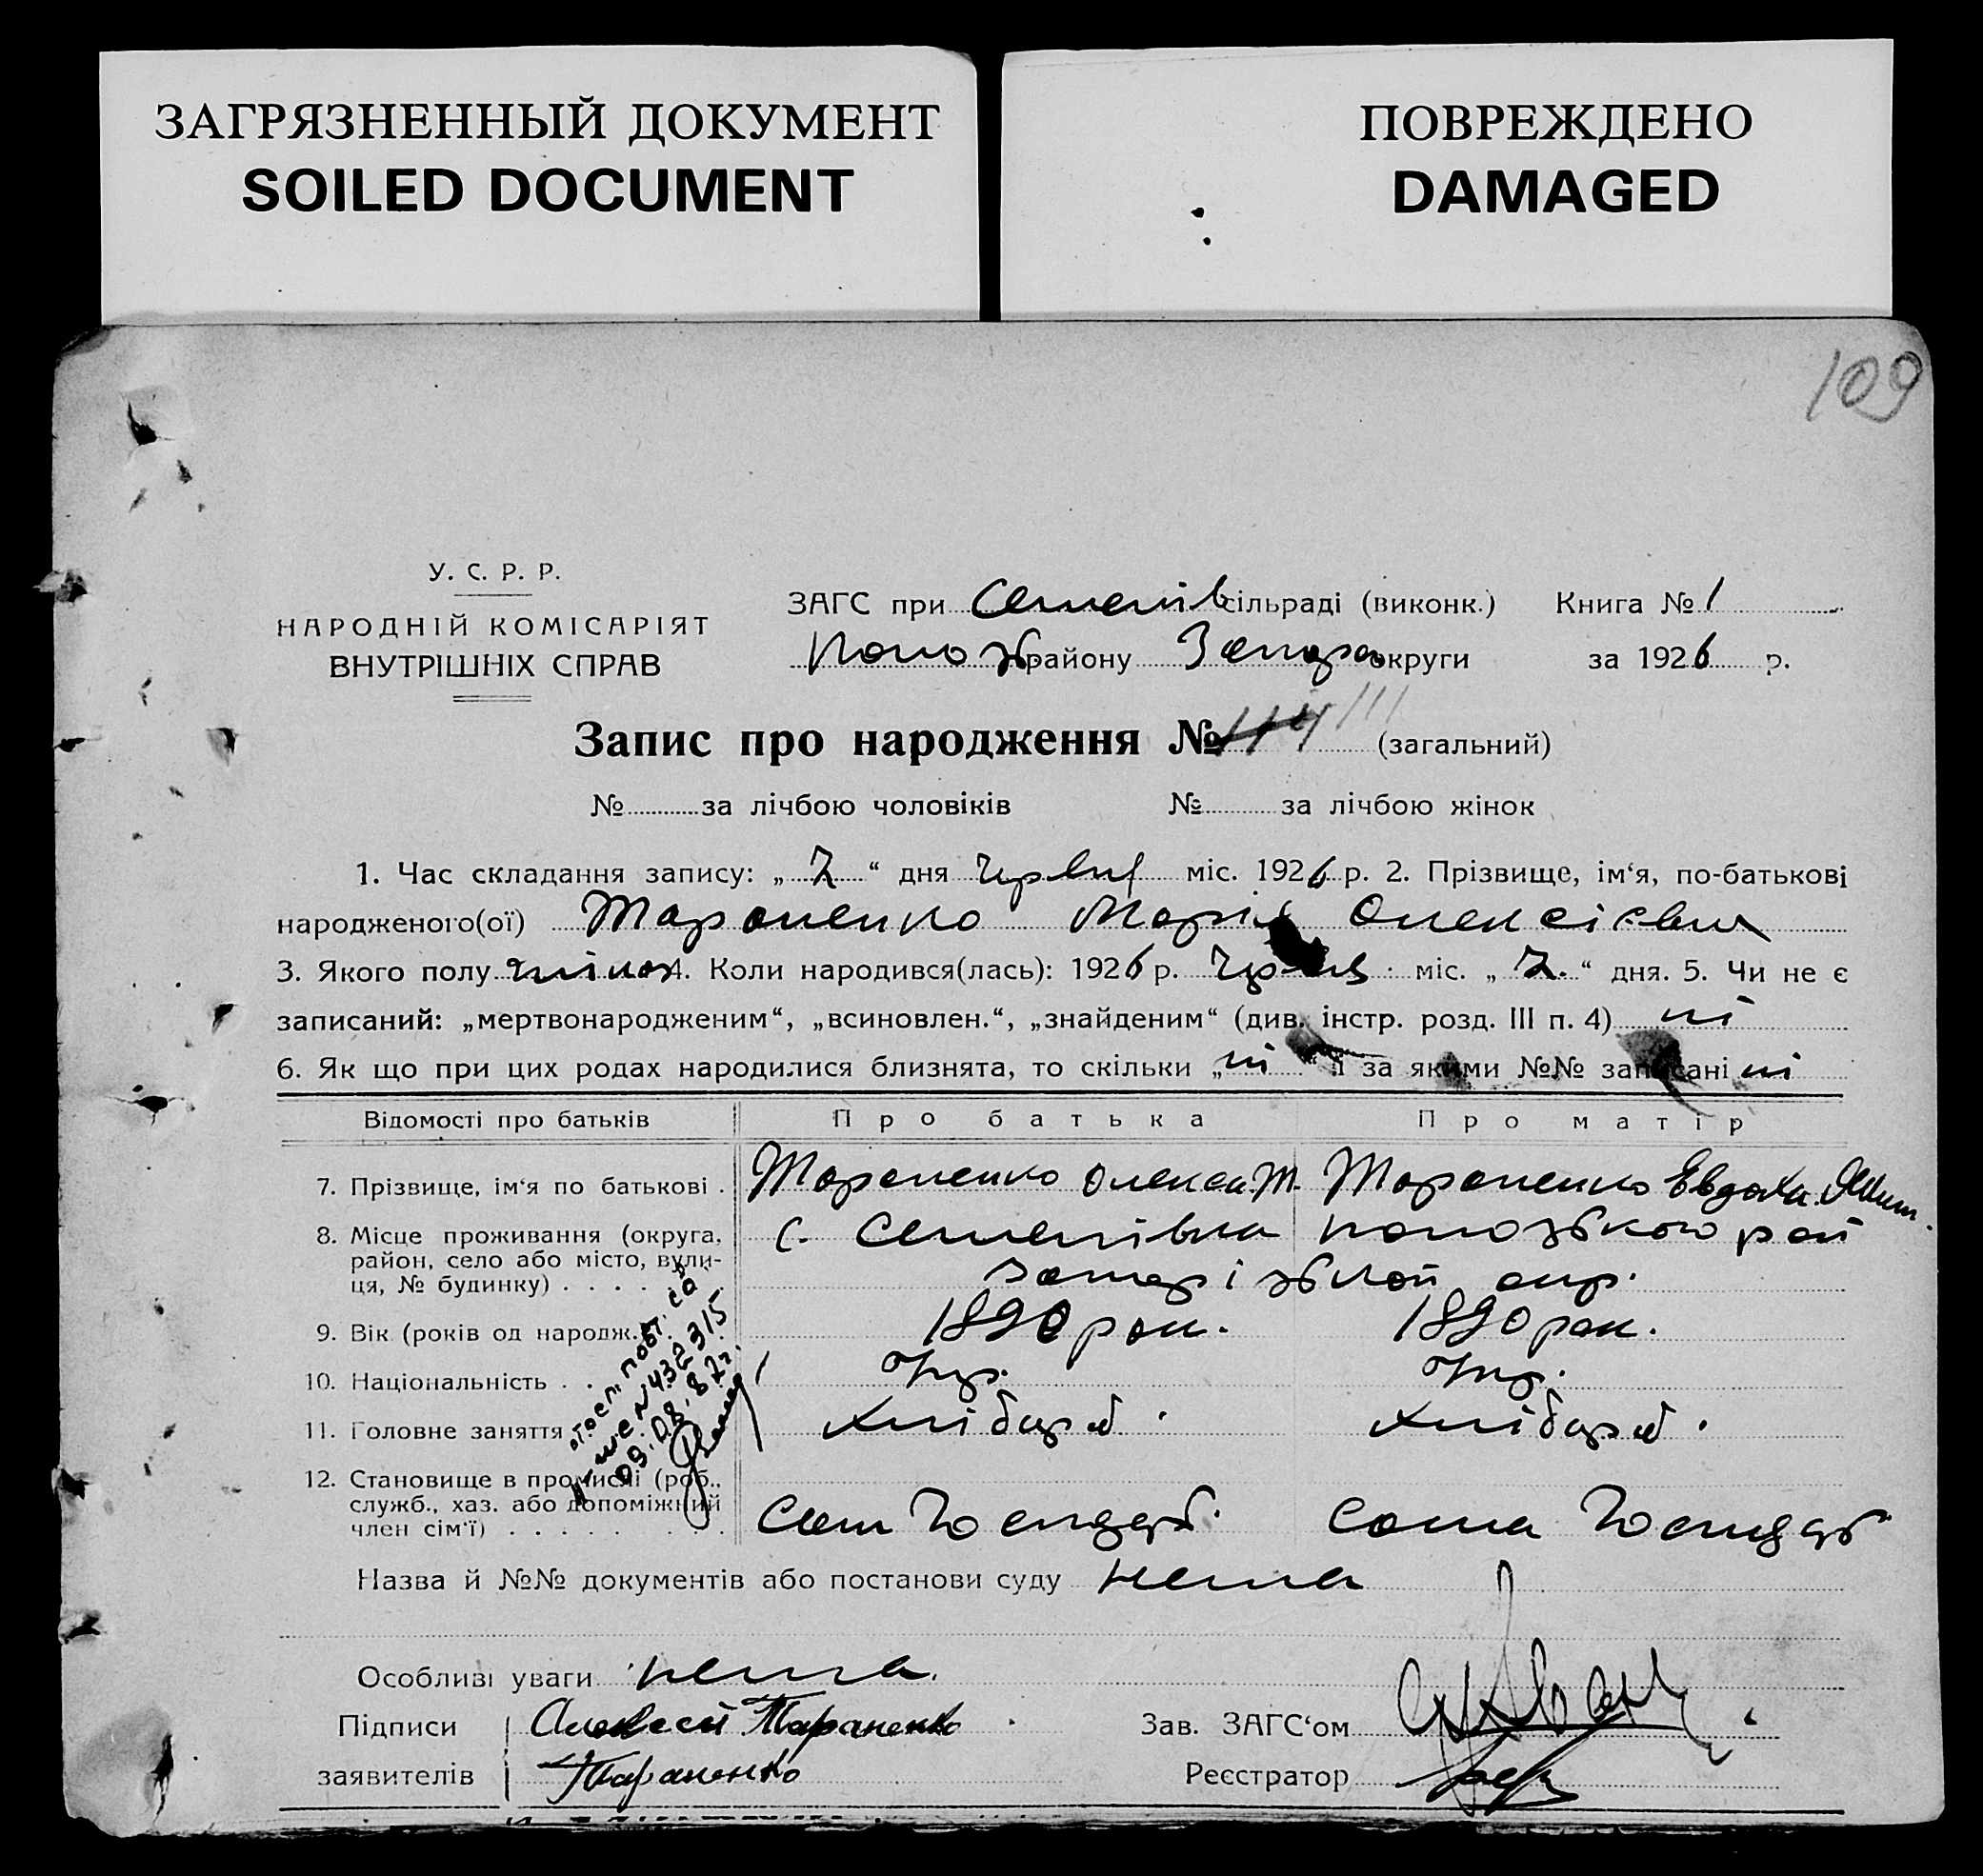 ЗАГРЯЗНЕННЫЙ ДОКУМЕНТ
SOILED DOCUMENT
ПОВРЕЖДЕНО
DAMAGED
109
У. С. Р. Р.
НАРОДНІЙ КОМІСАРІЯТ
ВНУТРІШНІХ СПРАВ
ЗАГС при Семенів сільраді (виконк.) Книга № 1
району Запор округи за 1926 р.
Запис про народження № 114 111 (загальний)
№ за лічбою чоловіків № за лічбою жінок
1. Час складання запису: „ 7 “ дня міс. 1926 р. 2. Прізвище, ім‘я, по-батькові
народженого(ої) Тараненко Марія Олексієвна
3. Якого полу жіноч 4. Коли народився(лась): 1926 р. міс. „ 7. “ дня. 5. Чи не є
записаний: „мертвонародженим“, „всиновлен.“, „знайденим“ (див. інстр. розд. III п. 4) ні
6. Як що при цих родах народилися близнята, то скільки „ ні “ й за якими №№ записані ні
Відомості про батьків Про батька Про матір
7. Прізвище, ім‘я по батькові . Тараненко Олексій Т. Тараненко Евдоха
8. Місце проживання (округа, район, село або місто, вулиця, № будинку) . . . . с. Семенівка рай
окр.
9. Вік (років од народж. 1890 рок. 1890 рок.
10. Національність . . Укр. Укр.
11. Головне заняття Хлібороб. Хлібороб.
12. Становище в промислі (роб., служб., хаз. або допоміжний член сім‘ї) . . . . Сам Господар. Сама Господар
№ 432315
09.08.82г.
Назва й №№ документів або постанови суду нема
Особливі уваги нема.
Підписи Алексей Тараненко Зав. ЗАГС‘ом
заявителів Тараненко Реєстратор